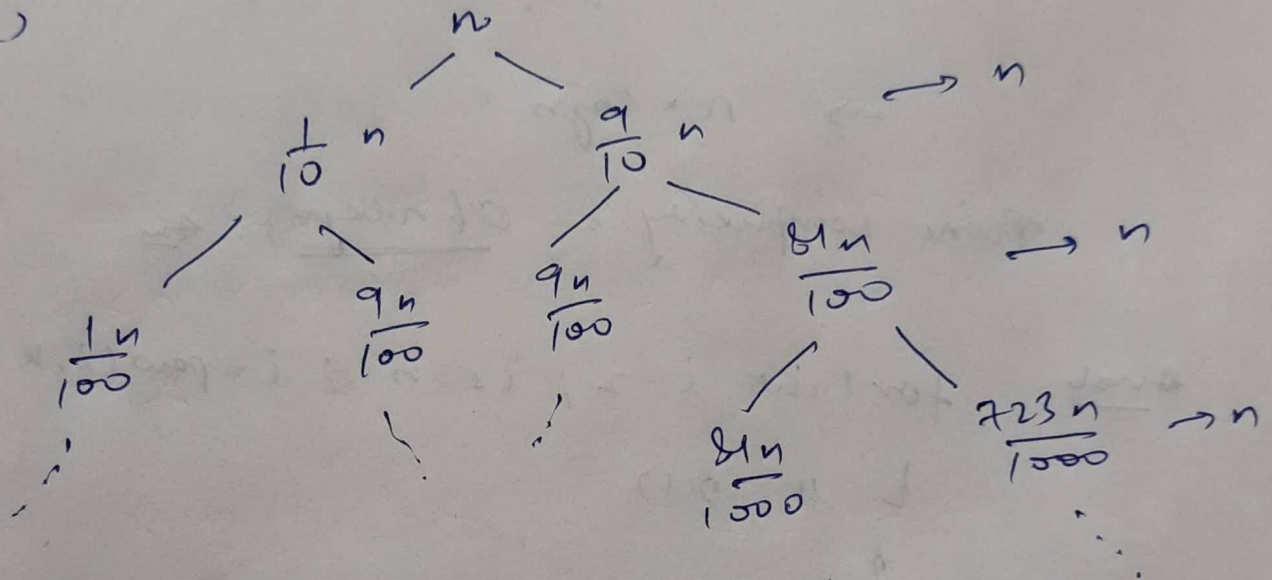 n
→ n
1/10 n 9/10 n
81n/100 → n
1n/100 9n/100 9n/100
81n/1000 723n/1000 → n